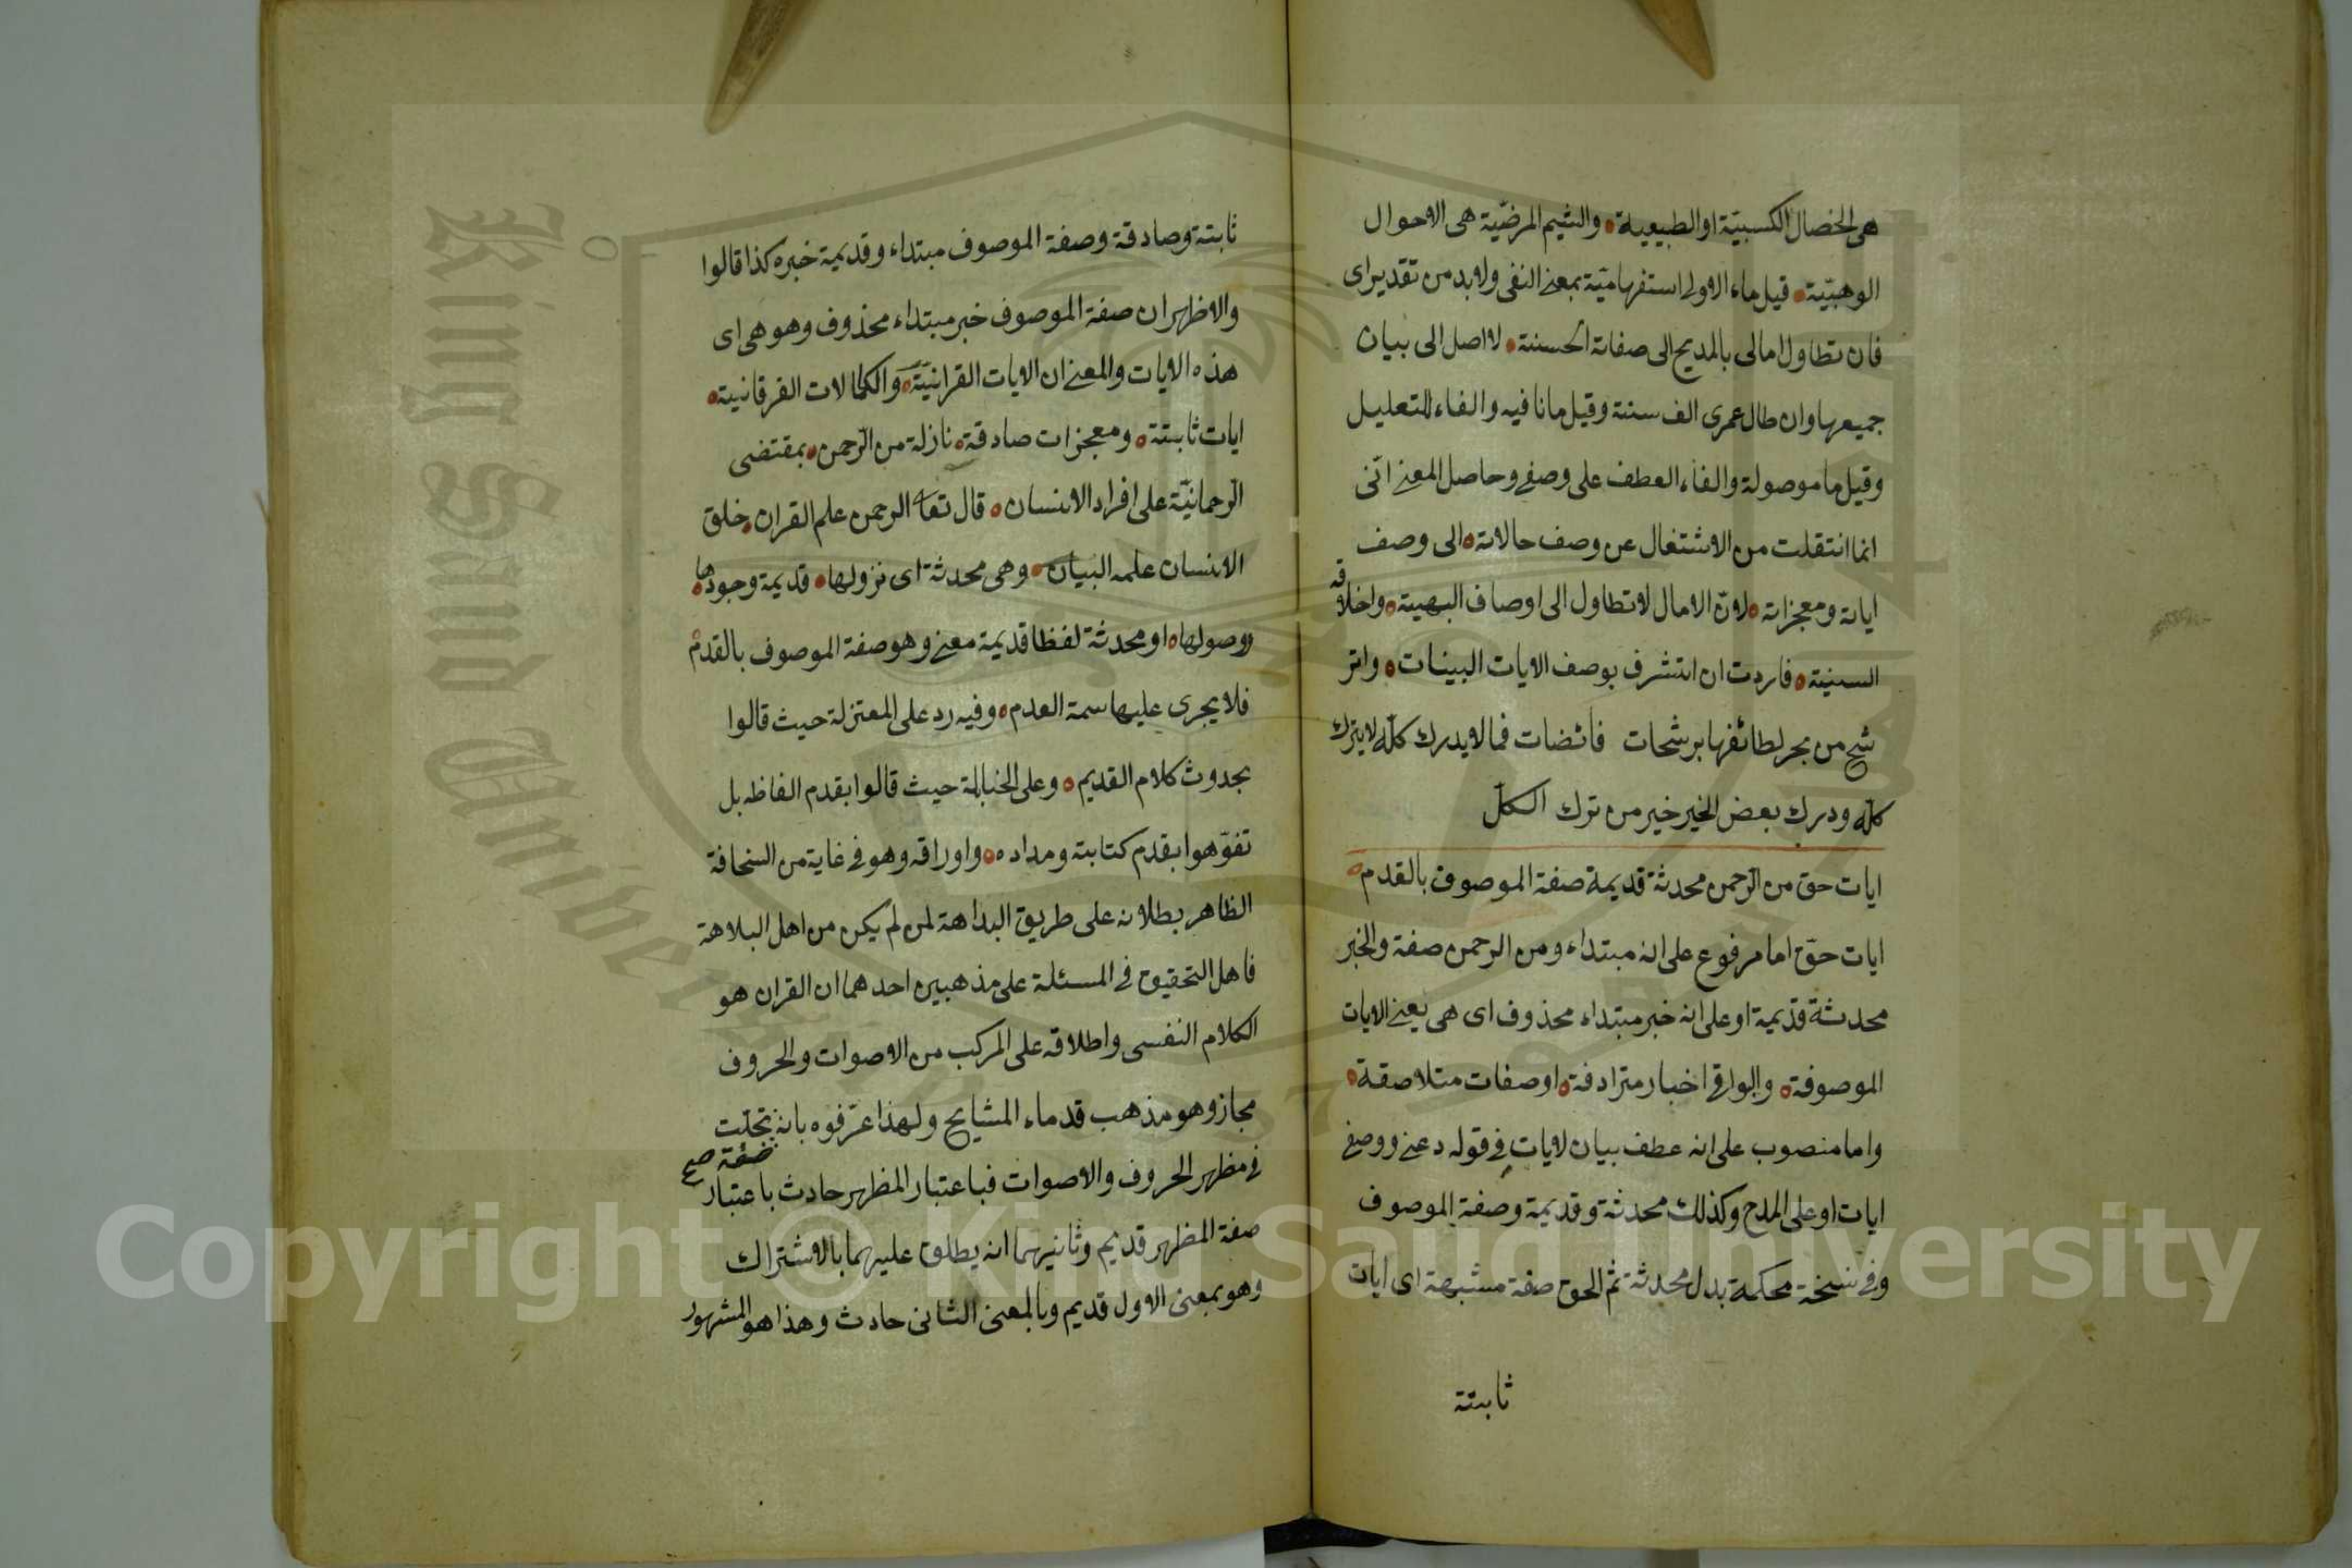 هى الخصال الكسبيّة او الطبيعية والشيم المرضّية هى الاحوال
الوهبّية قيل ماء الاولى استفهاميّة بمعنى النفى ولا بد من تقدير اى
فان تطاول امالى بالمديح الى صفاته الحسنة لا اصل الى بيان
جميعها وان طال عمرى الف سنة وقيل ما نافيه والفاء للتعليل
وقيل ما موصولة والفاء العطف على وصفى وحاصل المعنى انّى
انما انتقلت من الاشتغال عن وصف حالاته الى وصف
اياته ومعجزاته لانّ الامال لا تطاول الى اوصاف البهية واخلاقه
السنية فاردت ان اتشرف بوصف الايات البينات واتر
شح من بحر لطائفها برشحات فائضات فما لا يدرك كلّه لا يترك
كلّه ودرك بعض الخير خير من ترك الكلّ
ايات حق من الرّحمن محدثة قديمة صفة الموصوف بالقدم
ايات حقّ اما مرفوع على انه مبتداء ومن الرحمن صفة والخبر
محدثة قديمة او على انه خبر مبتداء محذوف اى هى يعنى الايات
الموصوفة والبواقى اخبار مترادفة او صفات متلاصقة
واما منصوب على انه عطف بيان لايات فى قوله دعنى ووصفى
ايات او على المدح وكذلك محدثة وقديمة وصفة الموصوف
وفى نسخة محكمة بدل محدثة ثم الحق صفة مشبهة اى ايات
ثابتة
ثابتة وصادقة وصفة الموصوف مبتداء وقديمة خبره كذا قالوا
والاظهر ان صفة الموصوف خبر مبتداء محذوف وهو هى اى
هذه الايات والمعنى ان الايات القرانيّة والكمالات الفرقانية
ايات ثابتة ومعجزات صادقة نازلة من الرّحمن بمقتضى
الرّحمانيّة على افراد الانسان قال تعا الرحمن علم القران خلق
الانسان علمه البيان وهى محدثة اى نزولها قديمة وجودها
ووصولها او محدثة لفظا قديمة معنى وهو صفة الموصوف بالقدم
فلا يجرى عليها سمة العدم وفيه رد على المعتزلة حيث قالوا
بحدوث كلام القديم وعلى الحنابلة حيث قالوا بقدم الفاظه بل
تفوّهوا بقدم كتابته ومداده واوراقه وهو فى غاية من السخافة
الظاهر بطلانه على طريق البداهة لمن لم يكن من اهل البلاهة
فاهل التحقيق فى المسئلة على مذهبين احدهما ان القران هو
الكلام النفسى واطلاقه على المركب من الاصوات والحروف
مجاز وهو مذهب قدماء المشايح ولهذا عرّفوه بانه تجلّت
صفة صح
فى مظهر الحروف والاصوات فباعتبار المظهر حادث باعتبار
صفة المظهر قديم وثانيهما انه يطلق عليهما بالاشتراك
وهو بمعنى الاول قديم وبالمعنى الثانى حادث وهذا هو المشهور
King Saud University
Copyright © King Saud University